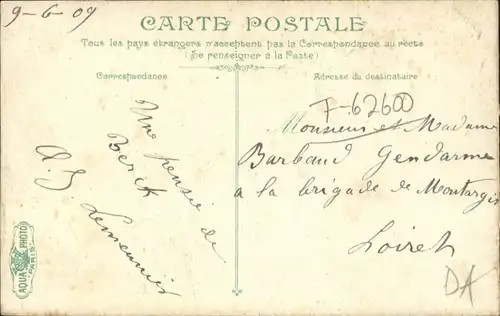 9-6-09
CARTE POSTALE
Tous les pays étrangers n'acceptent pas la Correspondance au recto
(Se renseigner à la Poste)
Correspondance
Adresse du destinataire
7-62600
Monsieur et Madame
Barbaud Gendarme
a la brigade de Montargis
Loiret
Une pensie de
Lemeunier
AQUA PHOTO
PARIS
DA